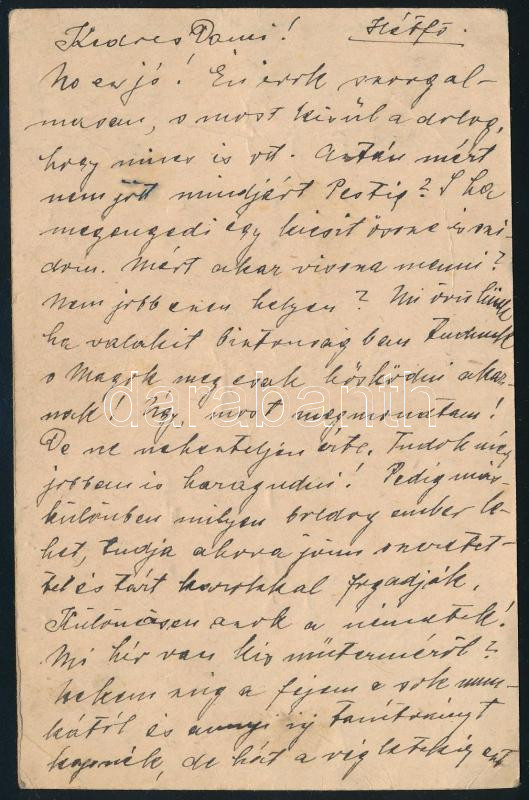 Kedves Dani! Hétfő.
No ez jó! Én írok szorgal-
masan, s most kisül a dolog,
hogy nincs is ott. Aztán mért
nem jött mindjárt Pestig? S ha
megengedi egy kicsit össze is szi-
dom. Mért akar vissza menni?
Nem jobb ezen helyen? Mi örülünk
ha valakit biztonságban tudunk
s Maguk meg csak hősködni akar-
nak! Így most megmondtam!
De ne nehezteljen érte. Tudok még
jobban is haragudni! Pedig más-
különben milyen boldog ember le-
het, tudja ahova jönn szeretet-
tel és tárt karokkal fogadják.
Különösen azok a németek!
Mi hír van kis műterméről?
Nekem zúg a fejem a sok mun-
kától és annyi új tanítványt
kapnék, de hát a végletekig ezt
darabanth